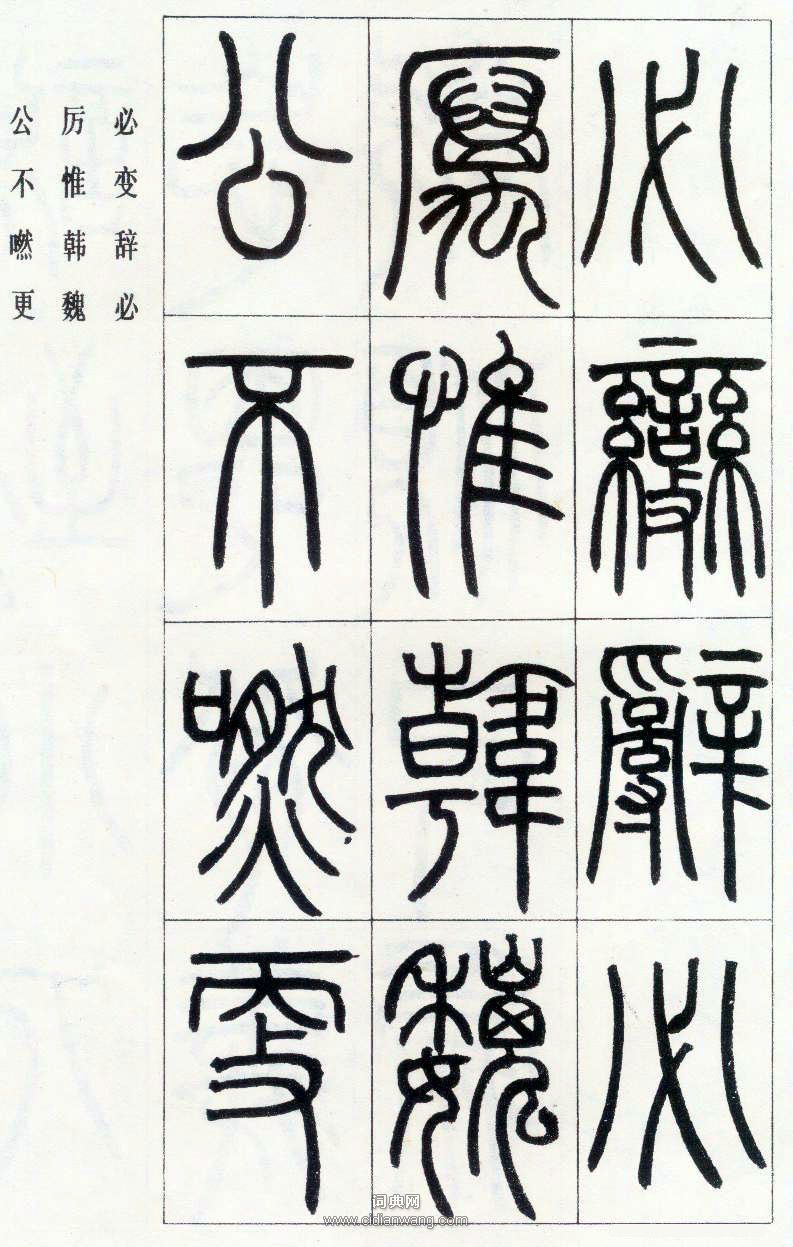 必變辭必
厲惟韓魏
公不嘫更
必变辞必
厉惟韩魏
公不嘫更
词典网
www.cidianwang.com